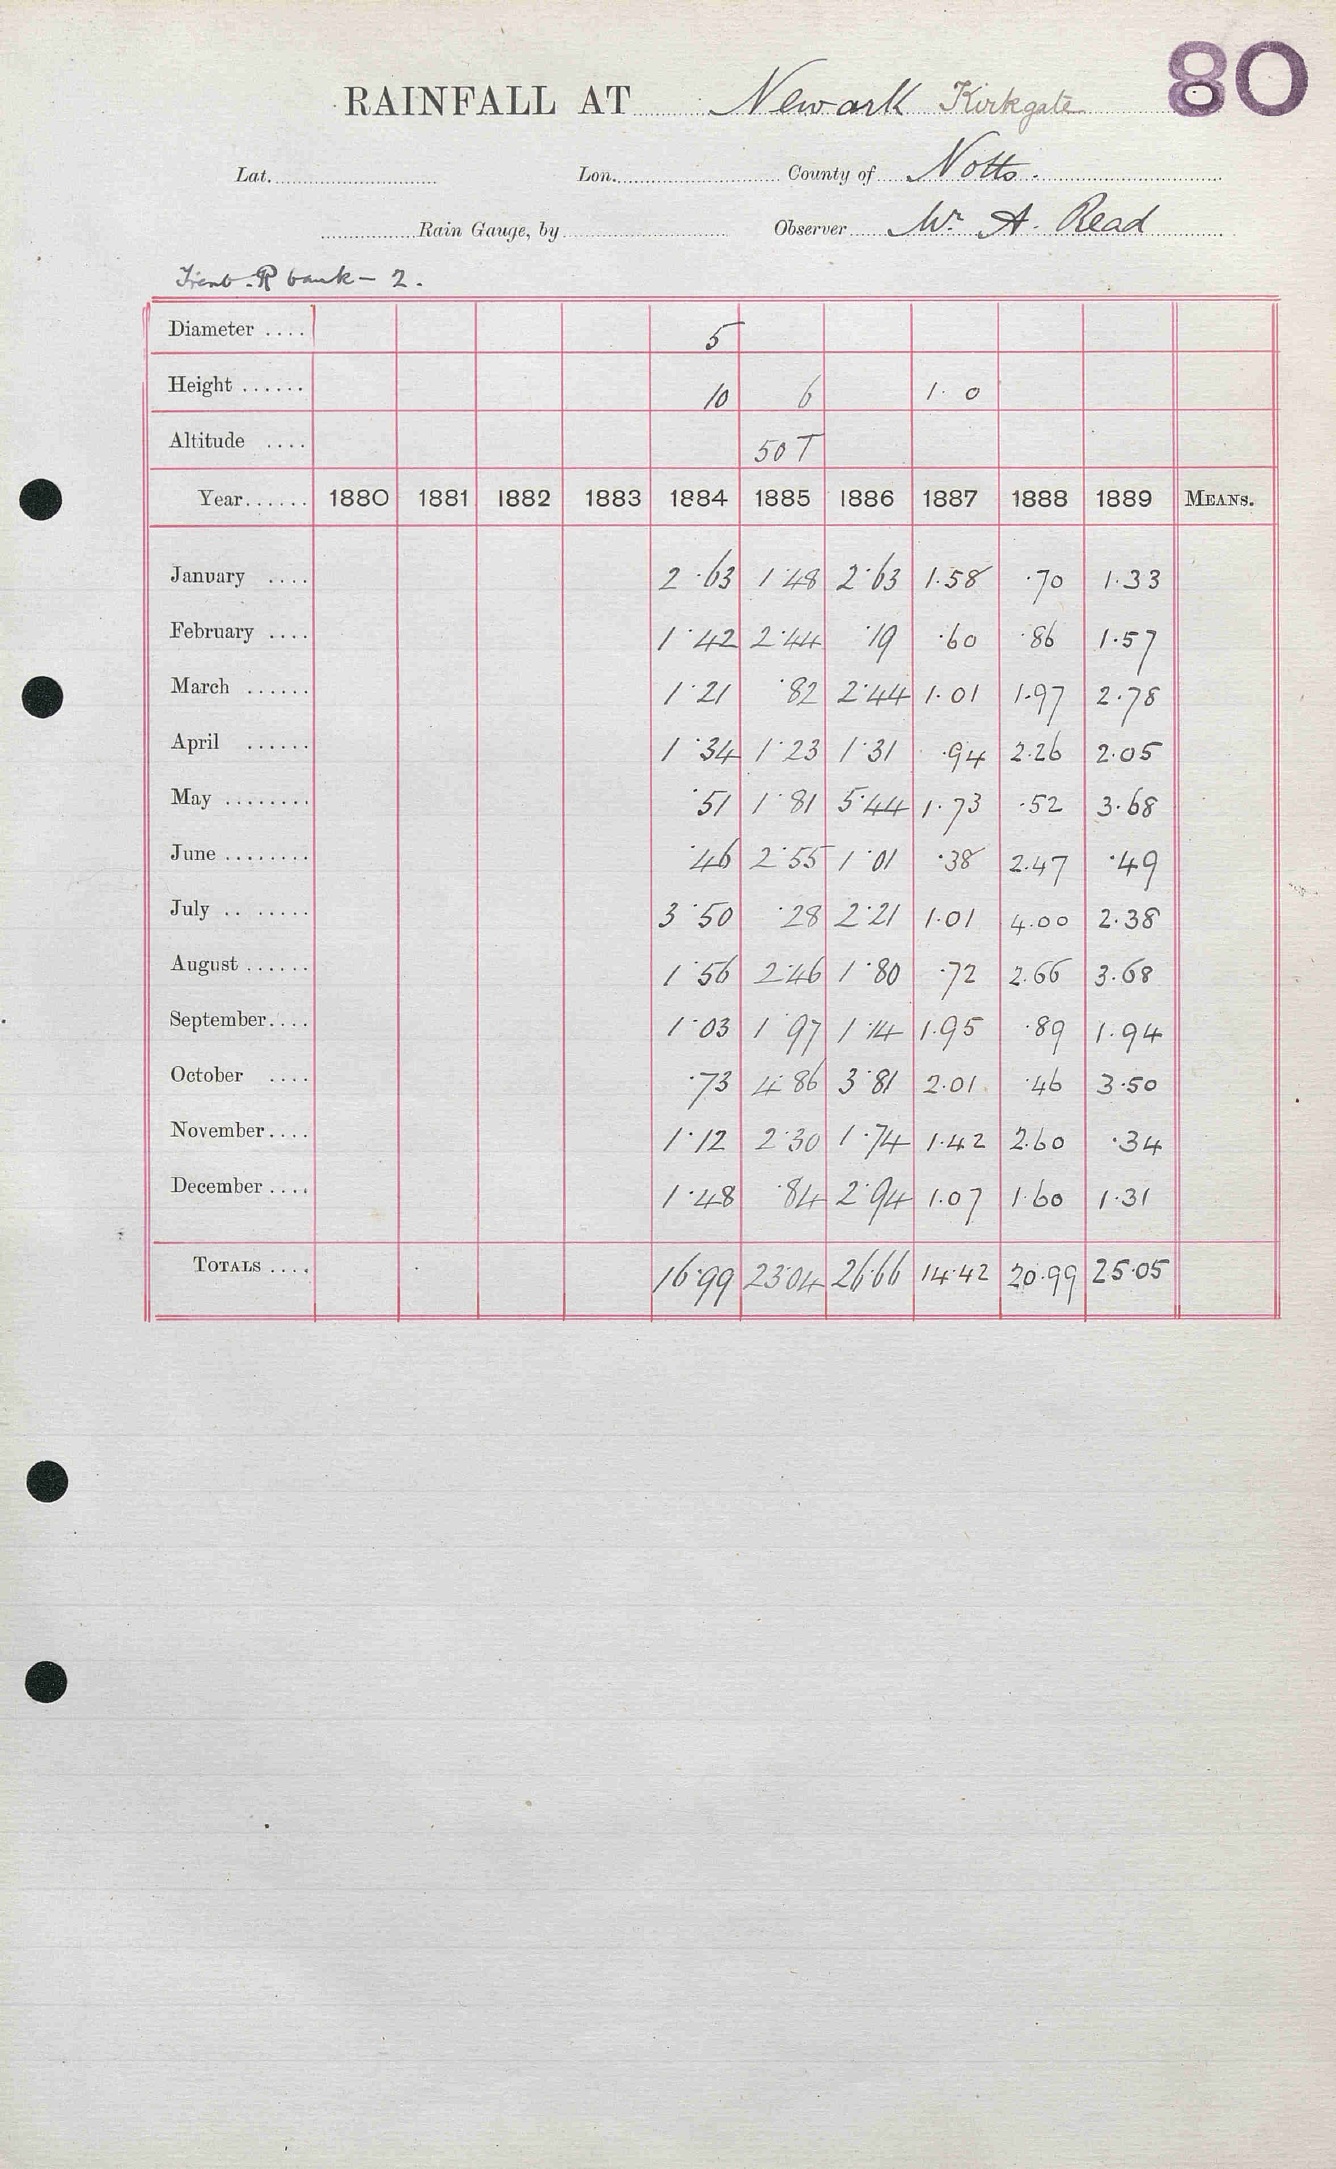 80
RAINFALL AT Newark Kirkgate
Lat. Lon. County of Notts.
Rain Gauge, by Observer Mr. A. Read
Trent. R bank - 2.
Diameter .... 5
Height ...... 10 6 1. 0
Altitude .... 50 T
Year...... 1880 1881 1882 1883 1884 1885 1886 1887 1888 1889 MEANS.
January .... 2.63 1.48 2.63 1.58 .70 1.33
February .... 1.42 2.44 .19 .60 .86 1.57
March ...... 1.21 .82 2.44 1.01 1.97 2.78
April ...... 1.34 1.23 1.31 .94 2.26 2.05
May ........ .51 1.81 5.44 1.73 .52 3.68
June ........ .46 2.55 1.01 .38 2.47 .49
July .. ..... 3.50 .28 2.21 1.01 4.00 2.38
August ...... 1.56 2.46 1.80 .72 2.66 3.68
September.... 1.03 1.97 1.14 1.95 .89 1.94
October .... .73 4.86 3.81 2.01 .46 3.50
November.... 1.12 2.30 1.74 1.42 2.60 .34
December .... 1.48 .84 2.94 1.07 1.60 1.31
TOTALS .... 16.99 23.04 26.66 14.42 20.99 25.05